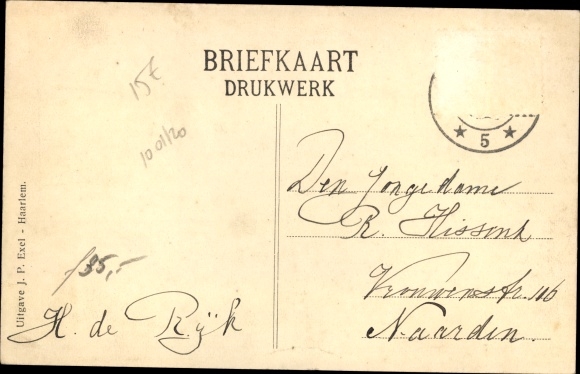 BRIEFKAART
DRUKWERK
15€
1001/20
5
Uitgave J. P. Exel - Haarlem.
ƒ35,-
H. de Rijk
Den Jongedame
R. Hissink
Vrouwenstr. 116
Naarden.